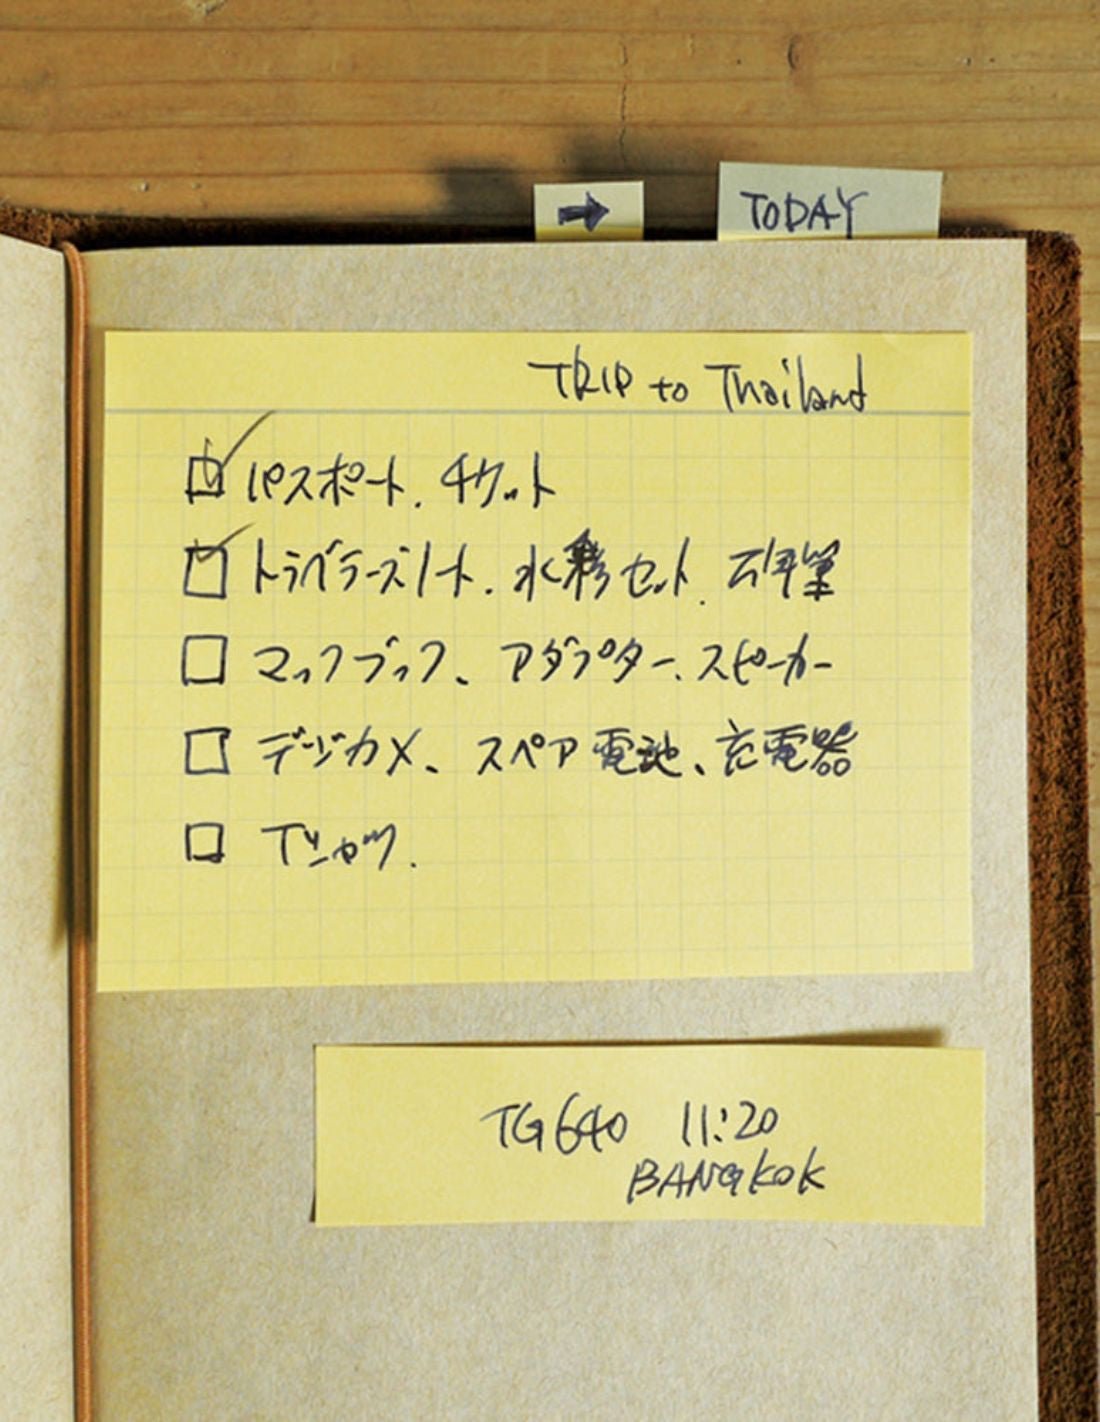 → TODAY
TRIP to Thailand
☑ パスポート、チケット
☑ トラベラーズノート、水彩セット、鉛筆
☐ マックブック、アダプター、スピーカー
☐ デジカメ、スペア電池、充電器
☐ Tシャツ.
TG640 11:20
BANGKOK